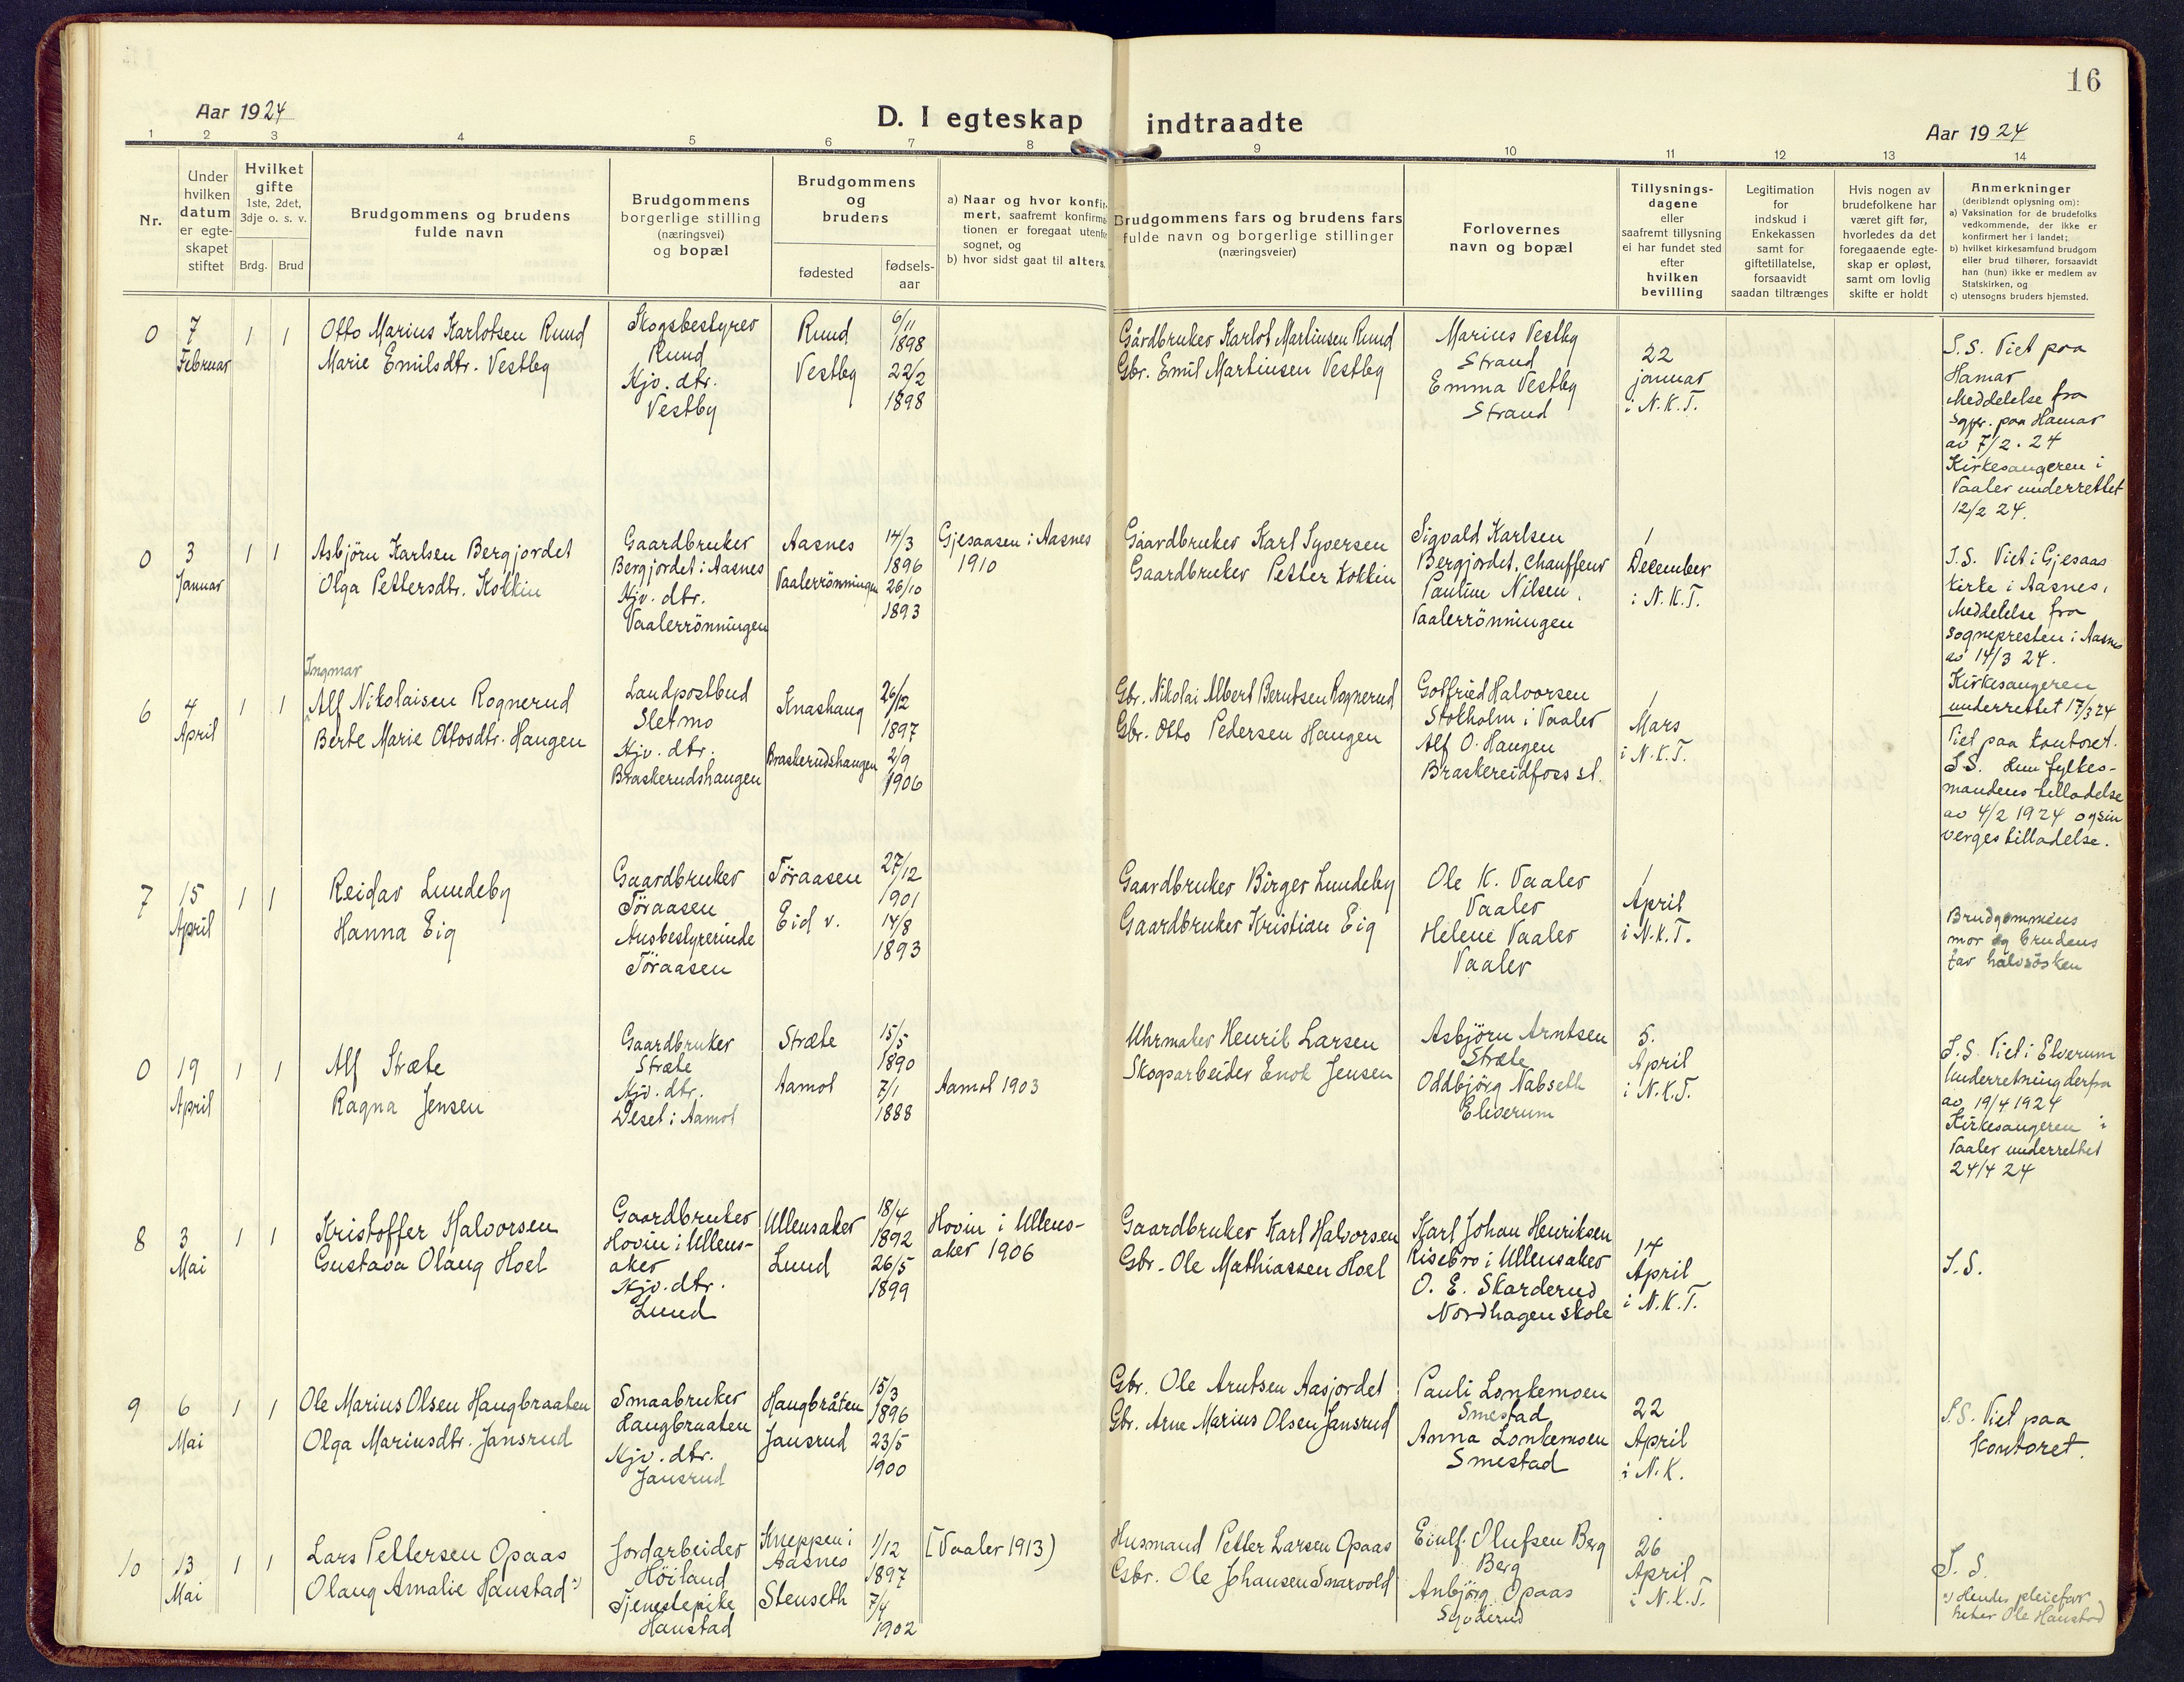 16
Aar 1924
D. I egteskap indtraadte
Aar 1924
1 2 3 4 5 6 7 8 9 10 11 12 13 14
Nr.
Under
hvilken
datum
er egte-
skapet
stiftet
Hvilket
gifte
1ste, 2det,
3dje o. s. v.
Brdg. Brud
Brudgommens og brudens
fulde navn
Brudgommens
borgerlige stilling
(næringsvei)
og bopæl
Brudgommens
og
brudens
fødested
fødsels-
aar
a) Naar og hvor konfir-
mert, saafremt konfirma-
tionen er foregaat utenfor
sognet, og
b) hvor sidst gaat til alters.
Brudgommens fars og brudens fars
fulde navn og borgerlige stillinger
(næringsveier)
Forlovernes
navn og bopæl
Tillysnings-
dagene
eller
saafremt tillysning
ei har fundet sted
efter
hvilken
bevilling
Legitimation
for
indskud i
Enkekassen
samt for
giftetillatelse,
forsaavidt
saadan tiltrænges
Hvis nogen av
brudefolkene har
været gift før,
hvorledes da det
foregaaende egte-
skap er opløst,
samt om lovlig
skifte er holdt
Anmerkninger
(deriblandt oplysning om):
a) Vaksination for de brudefolks
vedkommende, der ikke er
konfirmert her i landet;
b) hvilket kirkesamfund brudgom
eller brud tilhører, forsaavidt
han (hun) ikke er medlem av
Statskirken, og
c) utensogns bruders hjemsted.
0
7
Februar
1 1
Otto Marius Karlotsen Ruud
Marie Emilsdtr. Vestby
Skogsbestyrer
Ruud
Hjv. dtr.
Vestby
Ruud
Vestby
6/11
1898
22/2
1898
Gårdbruker Karlot Martinsen Ruud
Gbr. Emil Martinsen Vestby
Marius Vestby
Strand
Emma Vestby
Strand
22
januar
i N.K.T.
S.S. Viet paa
Hamar
Meddelelse fra
Sgpr. paa Hamar
av 7/2. 24
Kirkesangeren i
Vaaler underrettet
12/2 24.
0
3
Januar
1 1
Asbjörn Karlsen Bergjordet
Olga Pettersdtr. Kolkin
Gaardbruker
Bergjordet i Aasnes
Hjv. dtr.
Vaalerrönningen
Aasnes
Vaalerrönningen
14/3
1896
26/10
1893
Gjesaasen i Aasnes
1910
Gaardbruker Karl Syversen
Gaardbruker Petter Kolkin
Sigvald Karlsen
Bergjordet, chauffeur
Pauline Nilsen,
Vaalerrönningen
1
December
i N.K.T.
S.S. Viet i Gjesaas
kirke i Aasnes,
Meddelelse fra
sognepresten i Aasnes
av 14/3 24.
Kirkesangeren
underrettet 17/3 24
6
4
April
1 1
Ingmar
Alf Nikolaisen Rognerud
Berte Marie Ottosdtr. Haugen
Landpostbud
Sletmo
Hjv. dtr.
Braskerudshaugen
Knashaug
Braskerudshaugen
26/12
1897
2/9
1906
Gbr. Nikolai Albert Berntsen Rognerud
Gbr. Otto Pedersen Haugen
Gotfried Halvorsen
Stokholm i Vaaler
Alf O. Haugen
Braskereidfoss st.
1
Mars
i N.K.T.
Viet paa kontoret.
S.S. Hun fylkes-
mandens tilladelse
av 4/2 1924 og sin
verges tilladelse.
7
15
April
1 1
Reidar Lundeby
Hanna Eig
Gaardbruker
Töraasen
Husbestyrerinde
Töraasen
Töraasen
Eid v.
27/12
1901
14/8
1893
Gaardbruker Birger Lundeby
Gaardbruker Kristian Eig
Ole K. Vaaler
Vaaler
Helene Vaaler
Vaaler
1
April
i N.K.T.
Brudgommens
mor og brudens
far halvsösken
0
19
April
1 1
Alf Stræte
Ragna Jensen
Gaardbruker
Stræte
Hjv. dtr.
Deset i Aamot
Stræte
Aamot
15/5
1890
7/1
1888
Aamot 1903
Uhrmaker Henrik Larsen
Skogsarbeider Enok Jensen
Asbjörn Arntsen
Stræte
Oddbjörg Nabseth
Elverum
5.
April
i N.K.T.
S.S. Viet i Elverum
Underretning derfra
av 19/4 1924
Kirkesangeren i
Vaaler underrettet
24/4 24
8
3
Mai
1 1
Kristoffer Halvorsen
Gustava Olaug Hoel
Gaardbruker
Hovin i Ullens-
aker
Hjv. dtr.
Lund
Ullensaker
Lund
18/4
1892
26/5
1899
Hovin i Ullens-
aker 1906
Gaardbruker Karl Halvorsen
Gbr. Ole Mathiassen Hoel
Karl Johan Henriksen
Risebro i Ullensaker
O. E. Skarderud
Nordhagen skole
14
April
i N.K.T.
S.S.
9
6
Mai
1 1
Ole Marius Olsen Haugbraaten
Olga Mariusdtr. Jansrud
Smaabruker
Haugbraaten
Hjv. dtr.
Jansrud
Haugbråten
Jansrud
15/3
1896
23/5
1900
Gbr. Ole Arntsen Aasjordet
Gbr. Arne Marius Olsen Jansrud
Pauli Lonkemoen
Smestad
Anna Lonkemoen
Smestad
22
April
i N.K.
S.S. Viet paa
kontoret.
10
13
Mai
1 1
Lars Pettersen Opaas
Olaug Amalie Haustad x)
Jordarbeider
Höiland
Tjenestepike
Haustad
Kneppen i
Aasnes
Stenseth
1/12
1897
7/4
1902
(Vaaler 1913)
Husmand Petter Larsen Opaas
Gbr. Ole Johansen Snarvold
Einulf Olufsen Berg
Berg
Anbjörg Opaas
Syverud
26
April
i N.K.T.
S.S.
x) Hendes pleiefar
heter Ole Haustad